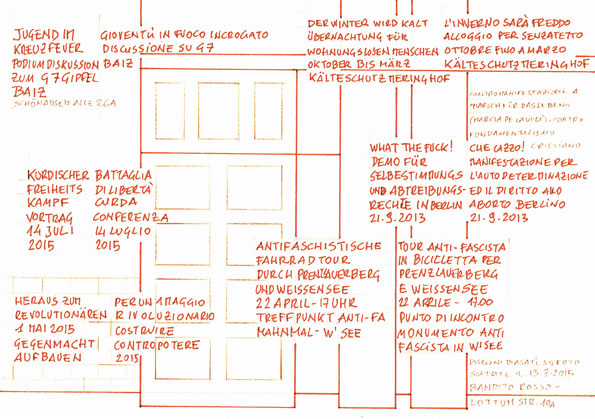 JUGEND IM
KREUZFEUER
PODIUMDISKUSSION
ZUM G7GIPFEL
BAIZ
SCHÖNHAUSER ALLE 26A
GIOVENTÙ IN FUOCO INCROGATO
DISCUSSIONE SU G7
BAIZ
DER WINTER WIRD KALT
ÜBERNACHTUNG FÜR
WOHNUNGSLOSEN MENSCHEN
OKTOBER BIS MÄRZ
KÄLTESCHUTZ MERINGHOF
L'INVERNO SARÀ FREDDO
ALLOGGIO PER SENZATETTO
OTTOBRE FINO A MARZO
KÄLTESCHUTZ MERINGHOF
CONTROMANIFESTAZIONE A
MARSCH FÜR DAS LEBEN
CONTRO
FONDAMENTALISMO
CRISTIANO
WHAT THE FUCK!
DEMO FÜR
SELBSTIMMUNGS
UND ABTREIBUNGS-
RECHTE IN BERLIN
21.9.2013
CHE CAZZO!
MANIFESTAZIONE PER
L'AUTODETERMINAZIONE
ED IL DIRITTO AKO
ABORTO BERLINO
21.9.2013
KORDISCHER
FREIHEITS
KAMPF
VORTRAG
14 JULI
2015
BATTAGLIA
DI LIBERTÀ
CURDA
CONFERENZA
14 LUGLIO
2015
ANTIFASCHISTISCHE
FAHRRADTOUR
DURCH PRENZLAUERBERG
UND WEISSENSEE
22 APRIL - 17 UHR
TREFFPUNKT ANTI-FA
MAHNMAL - W'SEE
TOUR ANTI-FASCISTA
IN BICICLETTA PER
PRENZLAUERBERG
E WEISSENSEE
22 APRILE - 17.00
PUNTO DI INCONTRO
MONUMENTO ANTI
FASCISTA IN W'SEE
HERAUS ZUM
REVOLUTIONÄREN
1 MAI 2015
GEGENMACHT
AUFBAUEN
PER UN 1 MAGGIO
RIVOLUZIONARIO
COSTRUIRE
CONTROPOTERE
2015
DISEGNI BASATI SU FOTO
IL 13.7.2015
BANDITO ROSSO -
LOTTUM STR. 10A